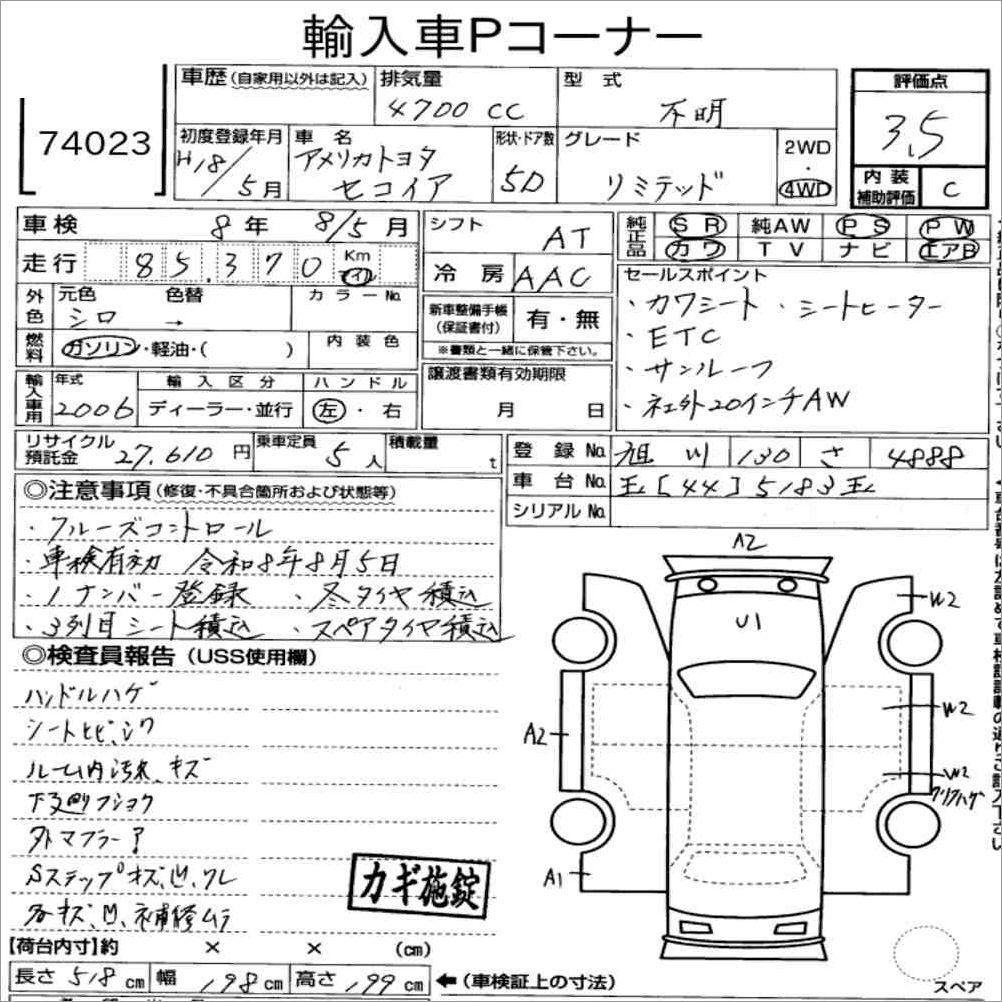 輸入車Pコーナー
74023
車歴(自家用以外は記入)
排気量 4700 CC
型式 不明
評価点 3.5
内装補助評価 C
初度登録年月 H18/5月
車名 アメリカトヨタ セコイア
形状・ドア数 5D
グレード リミテッド
2WD・4WD
車検 8年 8/5月
走行 85,370 Km マイル
シフト AT
冷房 AAC
純正品 SR 純AW PS PW
カワ TV ナビ エアB
外色 元色 シロ → 色替 カラーNo.
燃料 ガソリン・軽油・( ) 内装色
新車整備手帳(保証書付) 有・無
※書類と一緒に保管下さい。
セールスポイント
・カワシート ・シートヒーター
・ETC
・サンルーフ
・社外20インチAW
輸入車用 年式 2006
輸入区分 ディーラー・並行
ハンドル 左・右
譲渡書類有効期限 月 日
リサイクル預託金 27,610円
乗車定員 5人
積載量 t
登録No. 旭川 130 さ 4888
車台No. 国[44]5183国
シリアルNo.
◎注意事項(修復・不具合箇所および状態等)
・クルーズコントロール
・車検有効 令和8年8月5日
・1ナンバー登録 ・冬タイヤ積込
・3列目シート積込 ・スペアタイヤ積込
◎検査員報告(USS使用欄)
ハンドルハゲ
シートヒビ、シワ
ルーム内汚れ、キズ
下廻りフショク
外マフラー
Sステップキズ、凹、ワレ
各キズ、凹、補修ムラ
カギ施錠
A2
U1
W2
W2
A2
W2
クリアハゲ
A1
スペア
【荷台内寸】約 × × (cm)
長さ 518 cm 幅 198 cm 高さ 199 cm
←(車検証上の寸法)